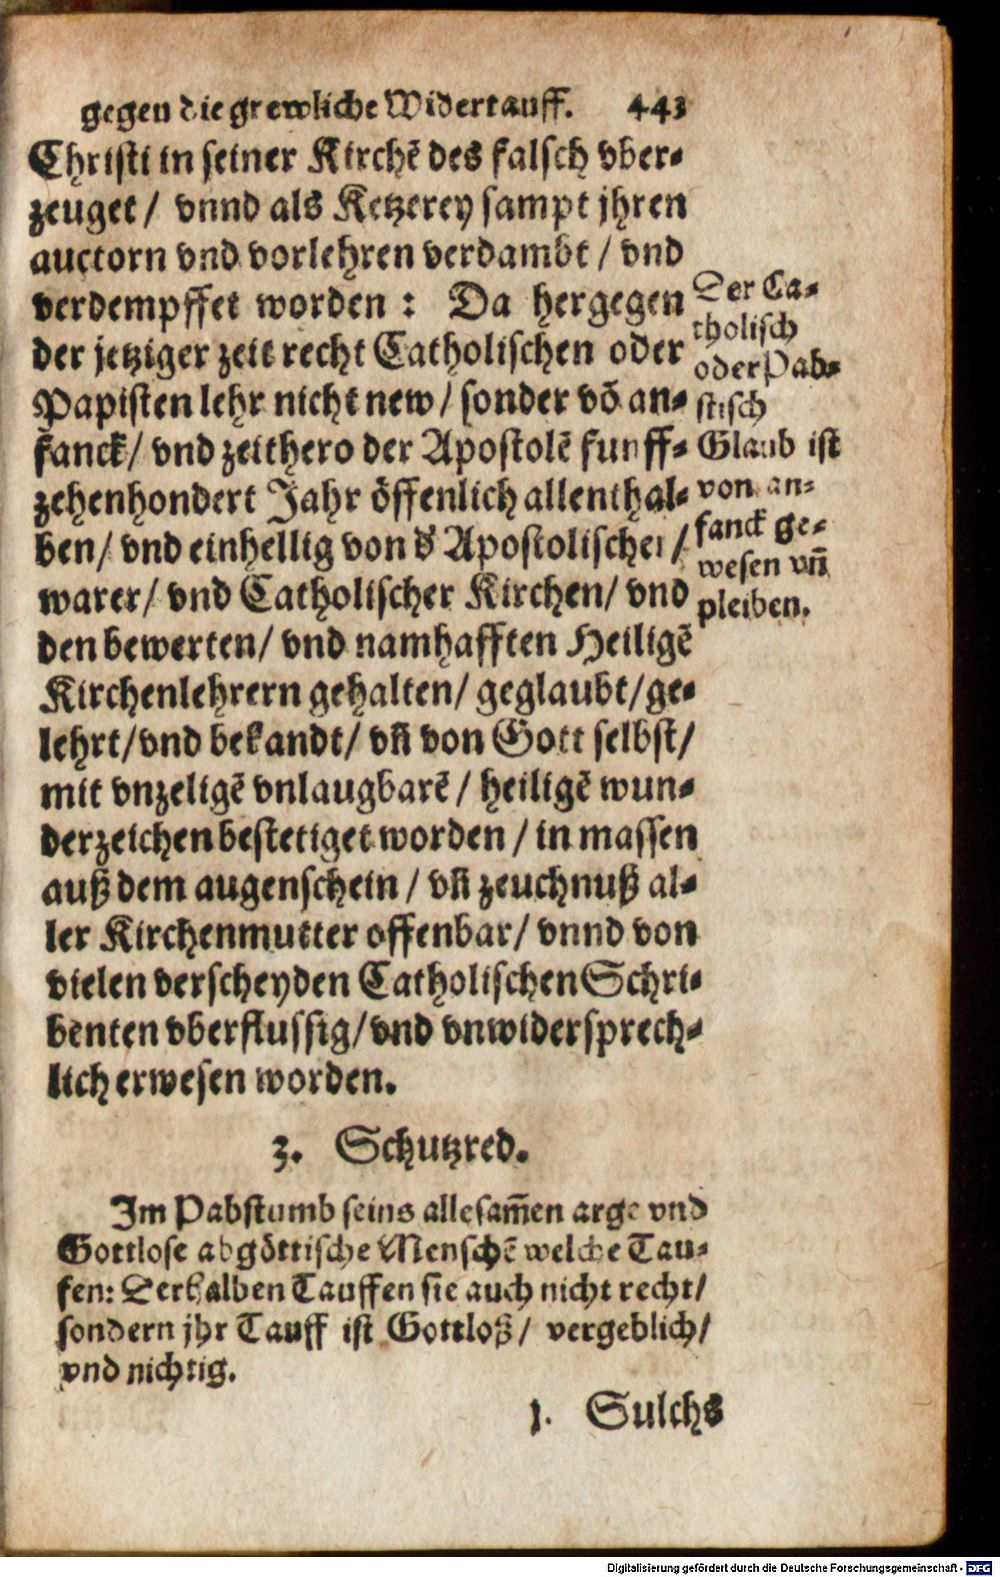 gegen die grewliche Widertauff. 443
Christi in seiner Kirchē des falsch vber-
zeuget / vnnd als Ketzerey sampt jhren
auctorn vnd vorlehren verdambt / vnd
verdempffet worden : Da hergegen
der jetziger zeit recht Catholischen oder
Papisten lehr nicht new / sonder võ an-
fanck / vnd zeithero der Apostolē funff-
zehenhondert Jahr öffenlich allenthal-
ben / vnd einhellig von d' Apostolischer /
warer / vnd Catholischer Kirchen / vnd
den bewerten / vnd namhafften Heiligē
Kirchenlehrern gehalten / geglaubt / ge-
lehrt / vnd bekandt / vñ von Gott selbst /
mit vnzeligē vnlaugbarē / heiligē wun-
derzeichen bestetiget worden / in massen
auß dem augenschein / vñ zeuchnuß al-
ler Kirchenmutter offenbar / vnnd von
vielen verscheyden Catholischen Schri-
benten vberflussig / vnd vnwidersprech-
lich erwesen worden.
Der Ca-
tholisch
oder Pab-
stisch
Glaub ist
von an-
fanck ge-
wesen vñ
pleiben.
3. Schutzred.
Im Pabstumb seins allesam̃en arge vnd
Gottlose abgöttische Menschē welche Tau-
fen: Derhalben Tauffen sie auch nicht recht /
sondern jhr Tauff ist Gottloß / vergeblich /
vnd nichtig.
1. Sulchs
Digitalisierung gefördert durch die Deutsche Forschungsgemeinschaft - DFG